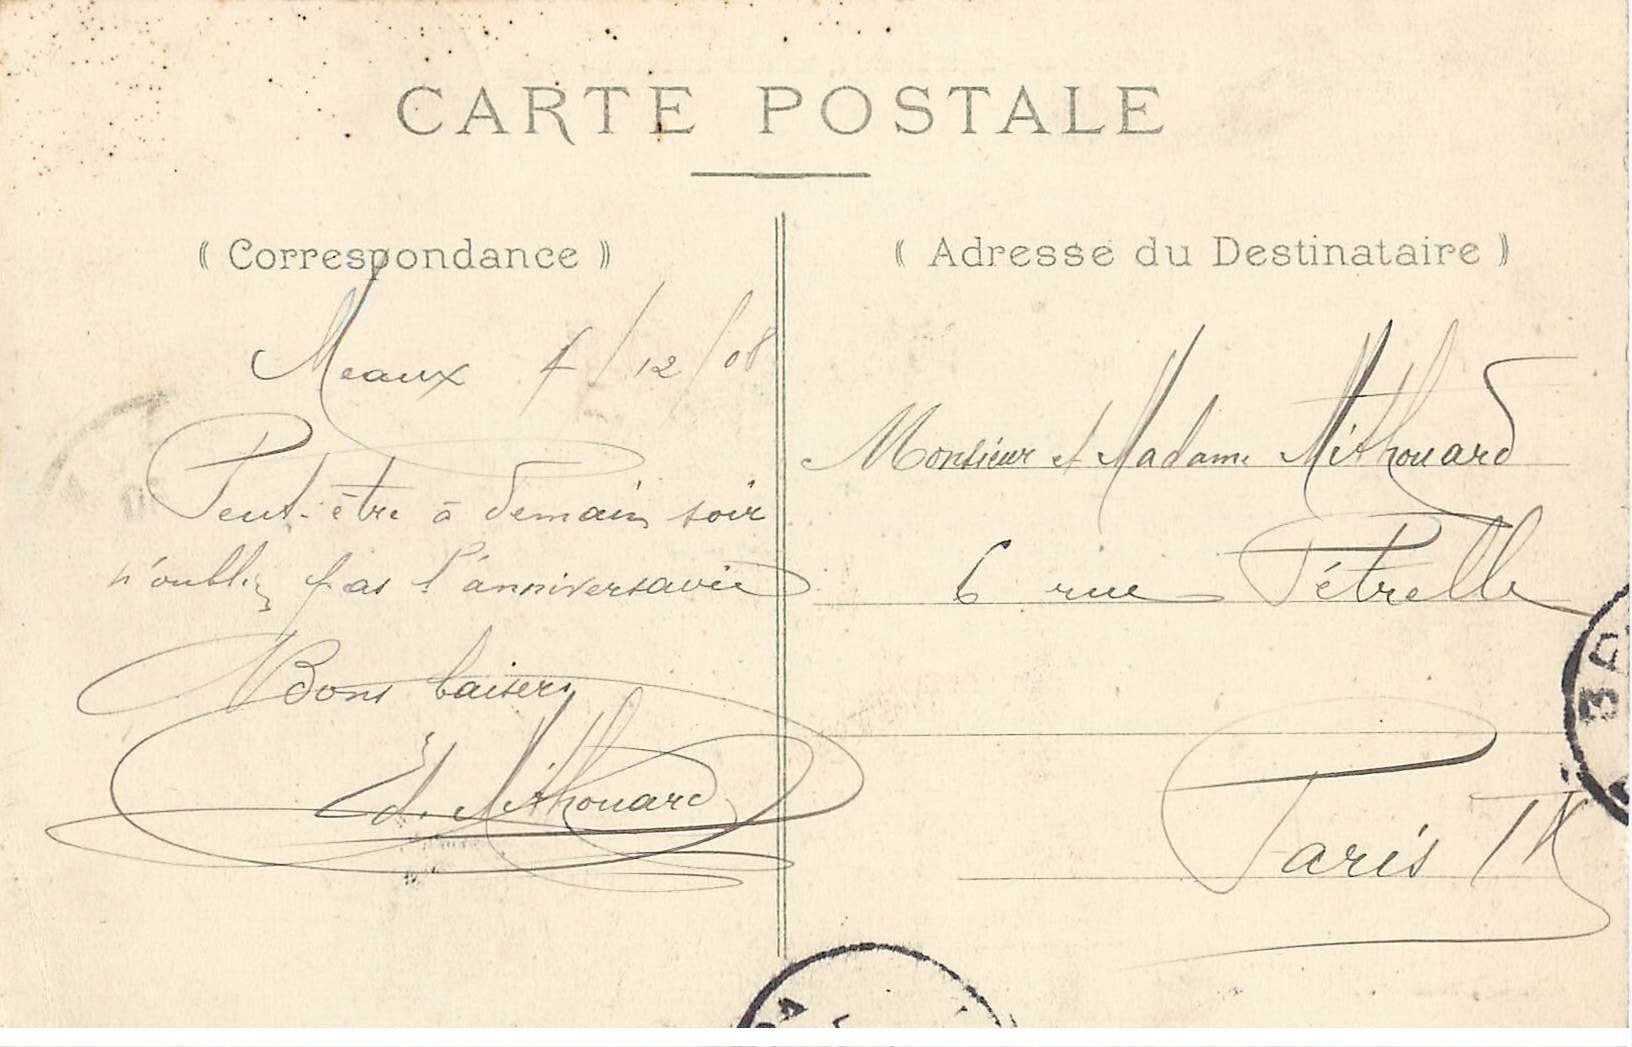 CARTE POSTALE
( Correspondance )
Meaux 4/12/08
Peut-être à demain soir
n'oubliez pas l'anniversaire
Bons baisers
Ed. Mithouard
( Adresse du Destinataire )
Monsieur et Madame Mithouard
6 rue Pétrelle
Paris IX